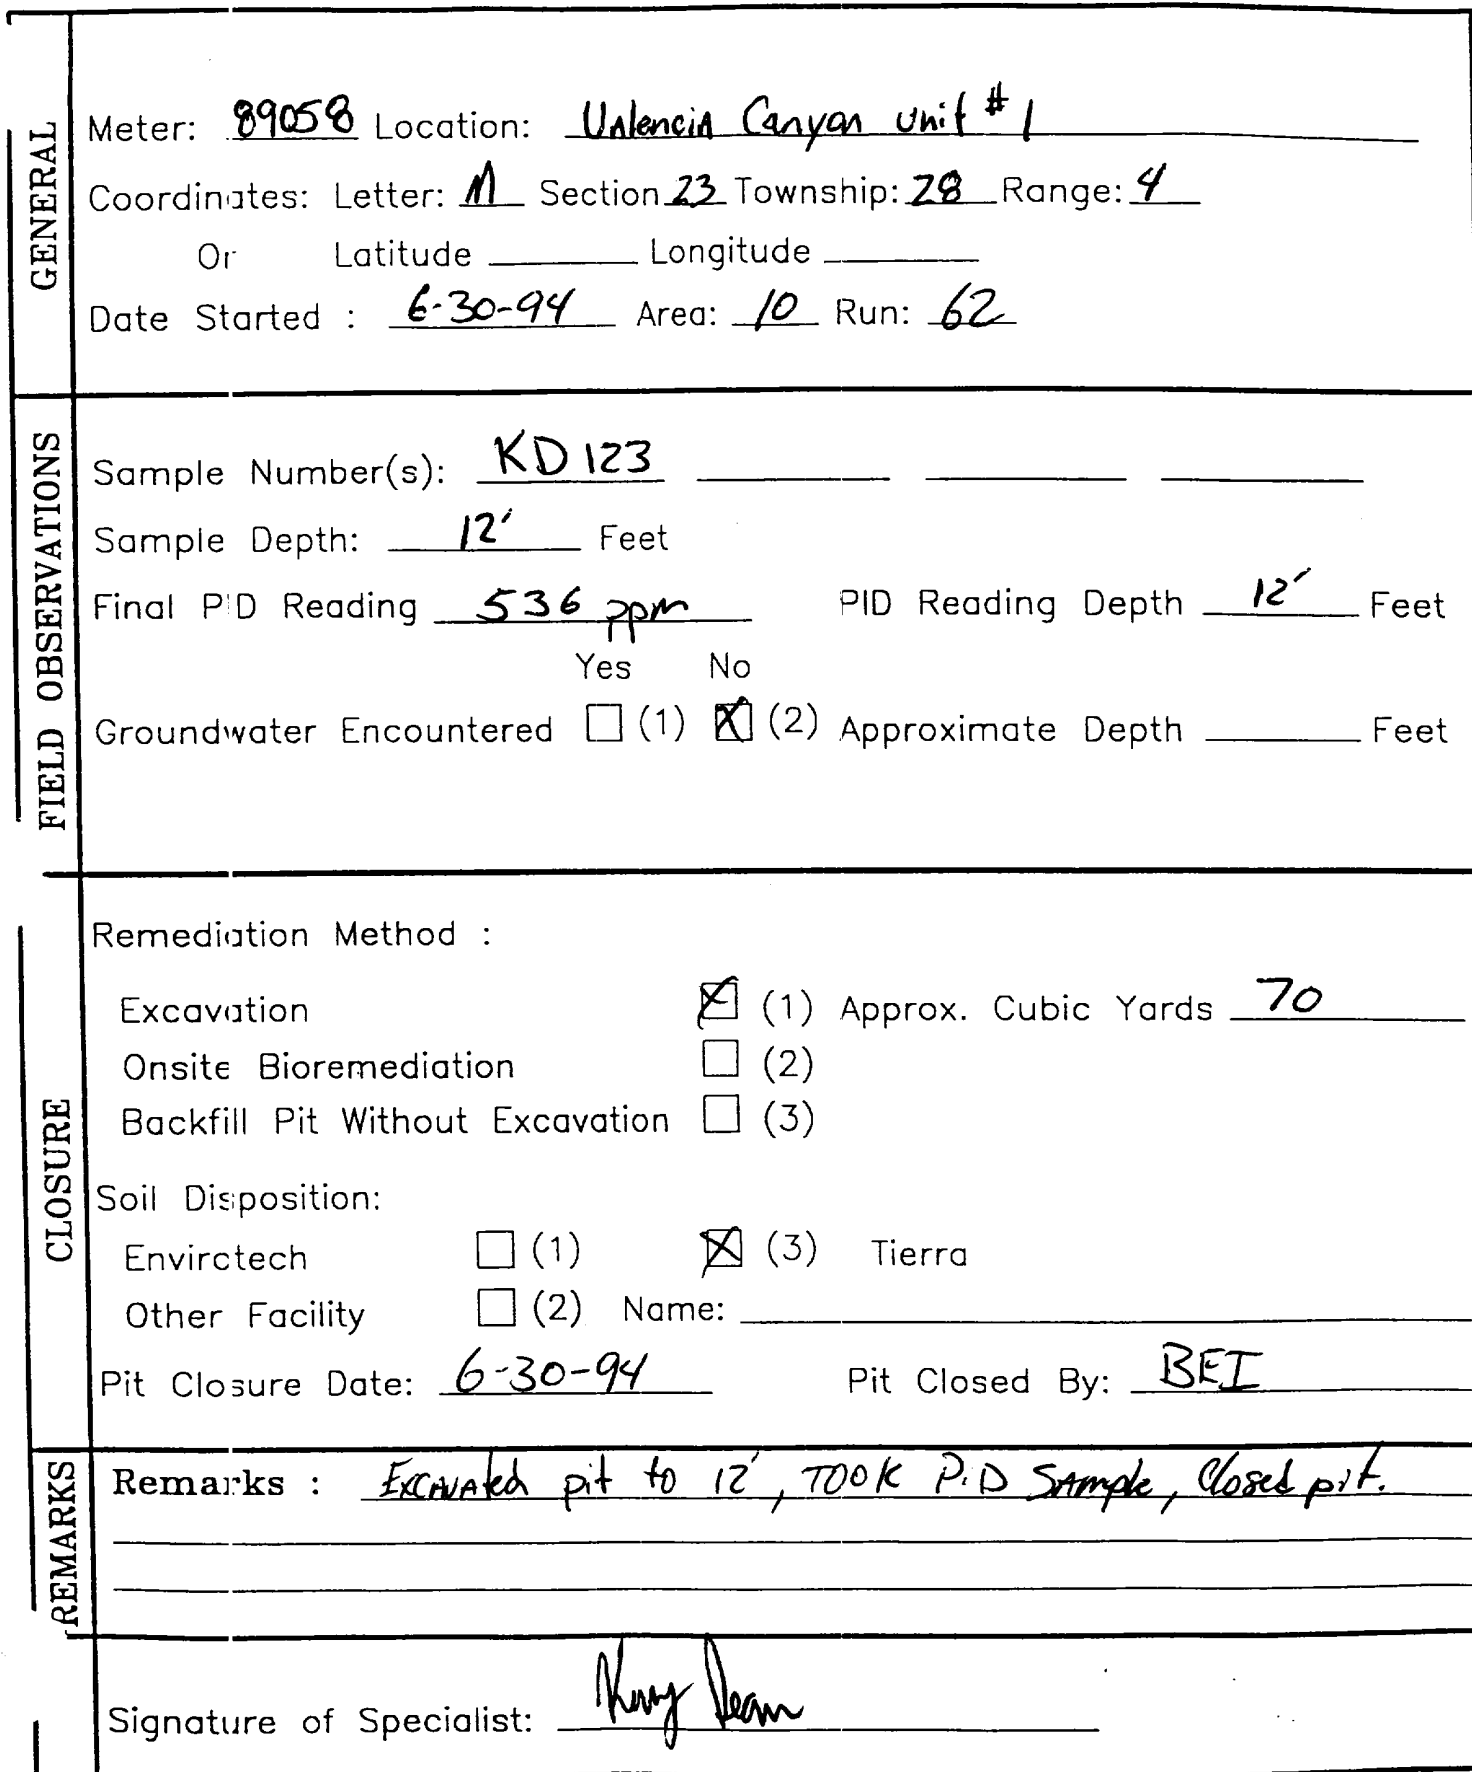 GENERAL
Meter: 89058 Location: Valencia Canyon Unit #1
Coordinates: Letter: M Section 23 Township: 28 Range: 4
Or Latitude Longitude
Date Started : 6-30-94 Area: 10 Run: 62
FIELD OBSERVATIONS
Sample Number(s): KD 123
Sample Depth: 12' Feet
Final PID Reading 536 ppm PID Reading Depth 12' Feet
Yes No
Groundwater Encountered ☐ (1) ☒ (2) Approximate Depth Feet
CLOSURE
Remediation Method :
Excavation ☒ (1) Approx. Cubic Yards 70
Onsite Bioremediation ☐ (2)
Backfill Pit Without Excavation ☐ (3)
Soil Disposition:
Envirotech ☐ (1) ☒ (3) Tierra
Other Facility ☐ (2) Name:
Pit Closure Date: 6-30-94 Pit Closed By: BEI
REMARKS
Remarks : Excavated pit to 12', Took PID Sample, Closed pit.
Signature of Specialist: Kerry Dean